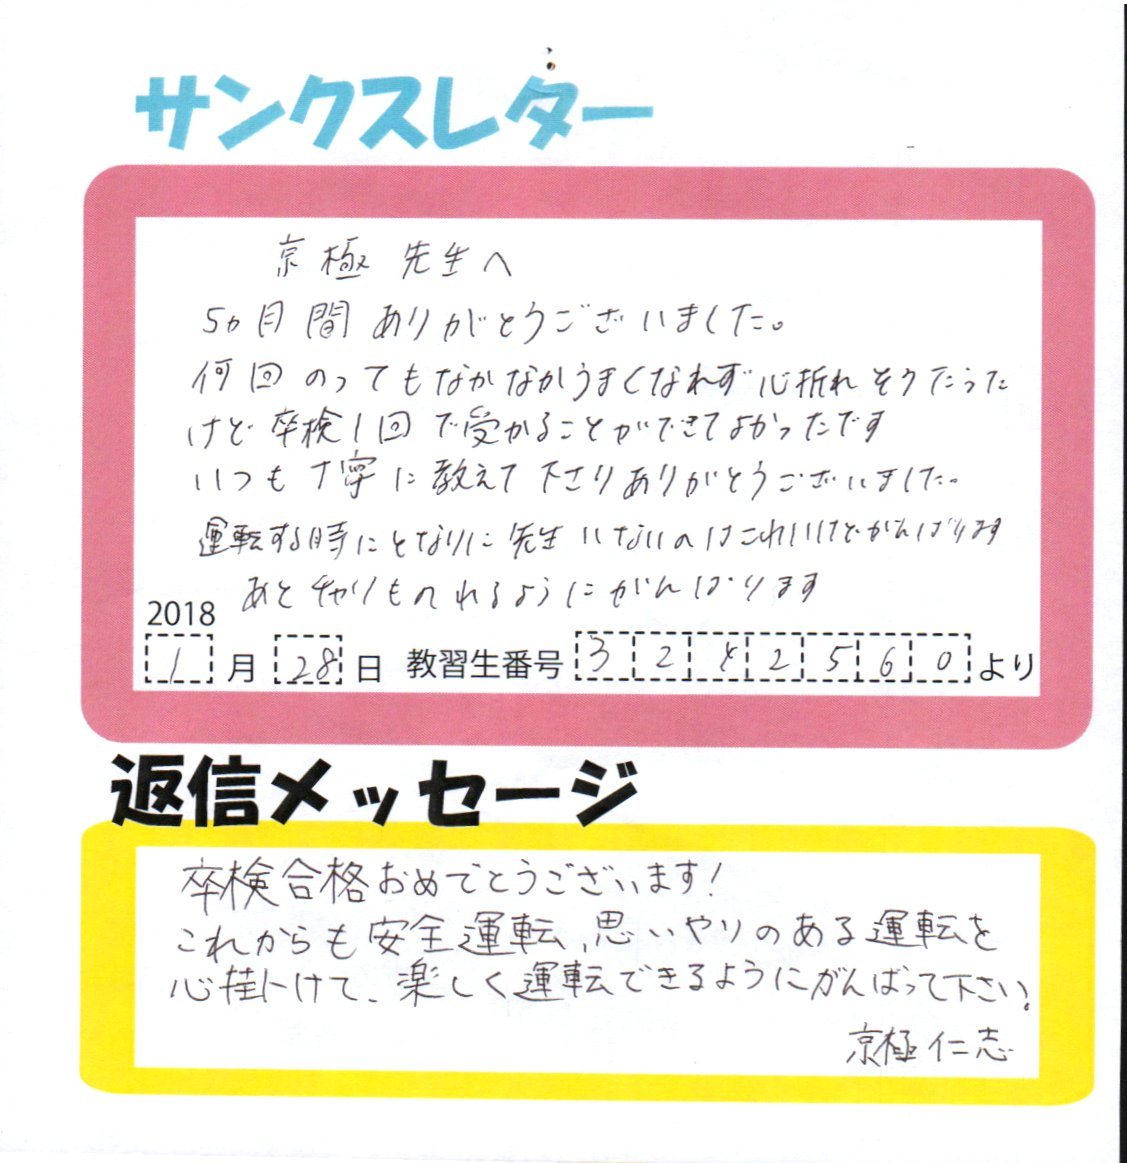 サンクスレター
京極 先生へ
5ヵ月間ありがとうございました。
何回のってもなかなかうまくなれず心折れそうだった
けど卒検1回で受かることができてよかったです
いつも丁寧に教えて下さりありがとうございました。
運転する時にとなりに先生いないのはこわいけどがんばります
あとチャリものれるようにがんばります
2018
1月28日 教習生番号 32と2560より
返信メッセージ
卒検合格おめでとうございます!
これからも安全運転、思いやりのある運転を
心掛けて、楽しく運転できるようにがんばって下さい。
京極仁志